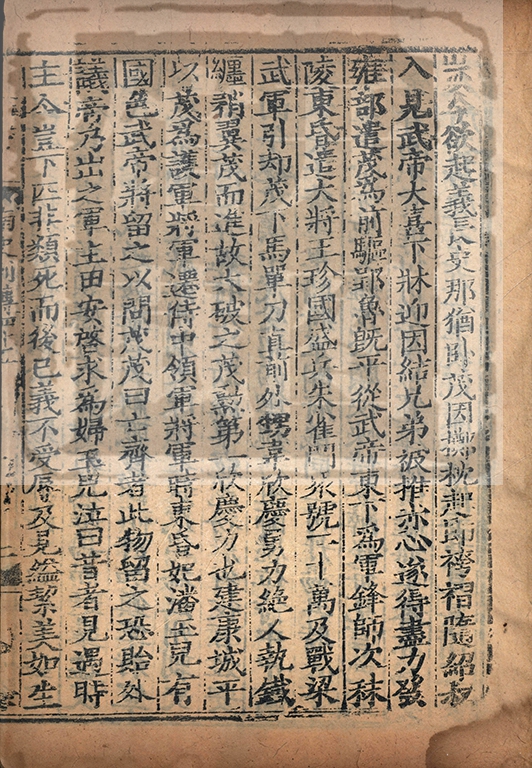 今欲起義長史那猶卧茂因擲枕起即袴褶隨紹叔
入見武帝大喜下牀迎因結兄弟被推赤心遂得盡力發
雍部遣茂爲前驅郢魯既平從武帝東下爲軍鋒師次秣
陵東昏遣大將王珍國盛兵朱雀門衆號二十萬及戰梁
武軍引却茂下馬單刀直前外甥韋欣慶勇力絶人執鐵
纏矟翼茂而進故大破之茂勲第一欣慶力也建康城平
以茂爲護軍將軍遷侍中領軍將軍時東昏妃潘玉兒有
國色武帝將留之以問茂茂曰亡齊者此物留之恐貽外
議帝乃出之軍主田安啓求爲婦玉兒泣曰昔者見遇時
主今豈下匹非類死而後已義不受辱及見縊絜美如生
南史列傳